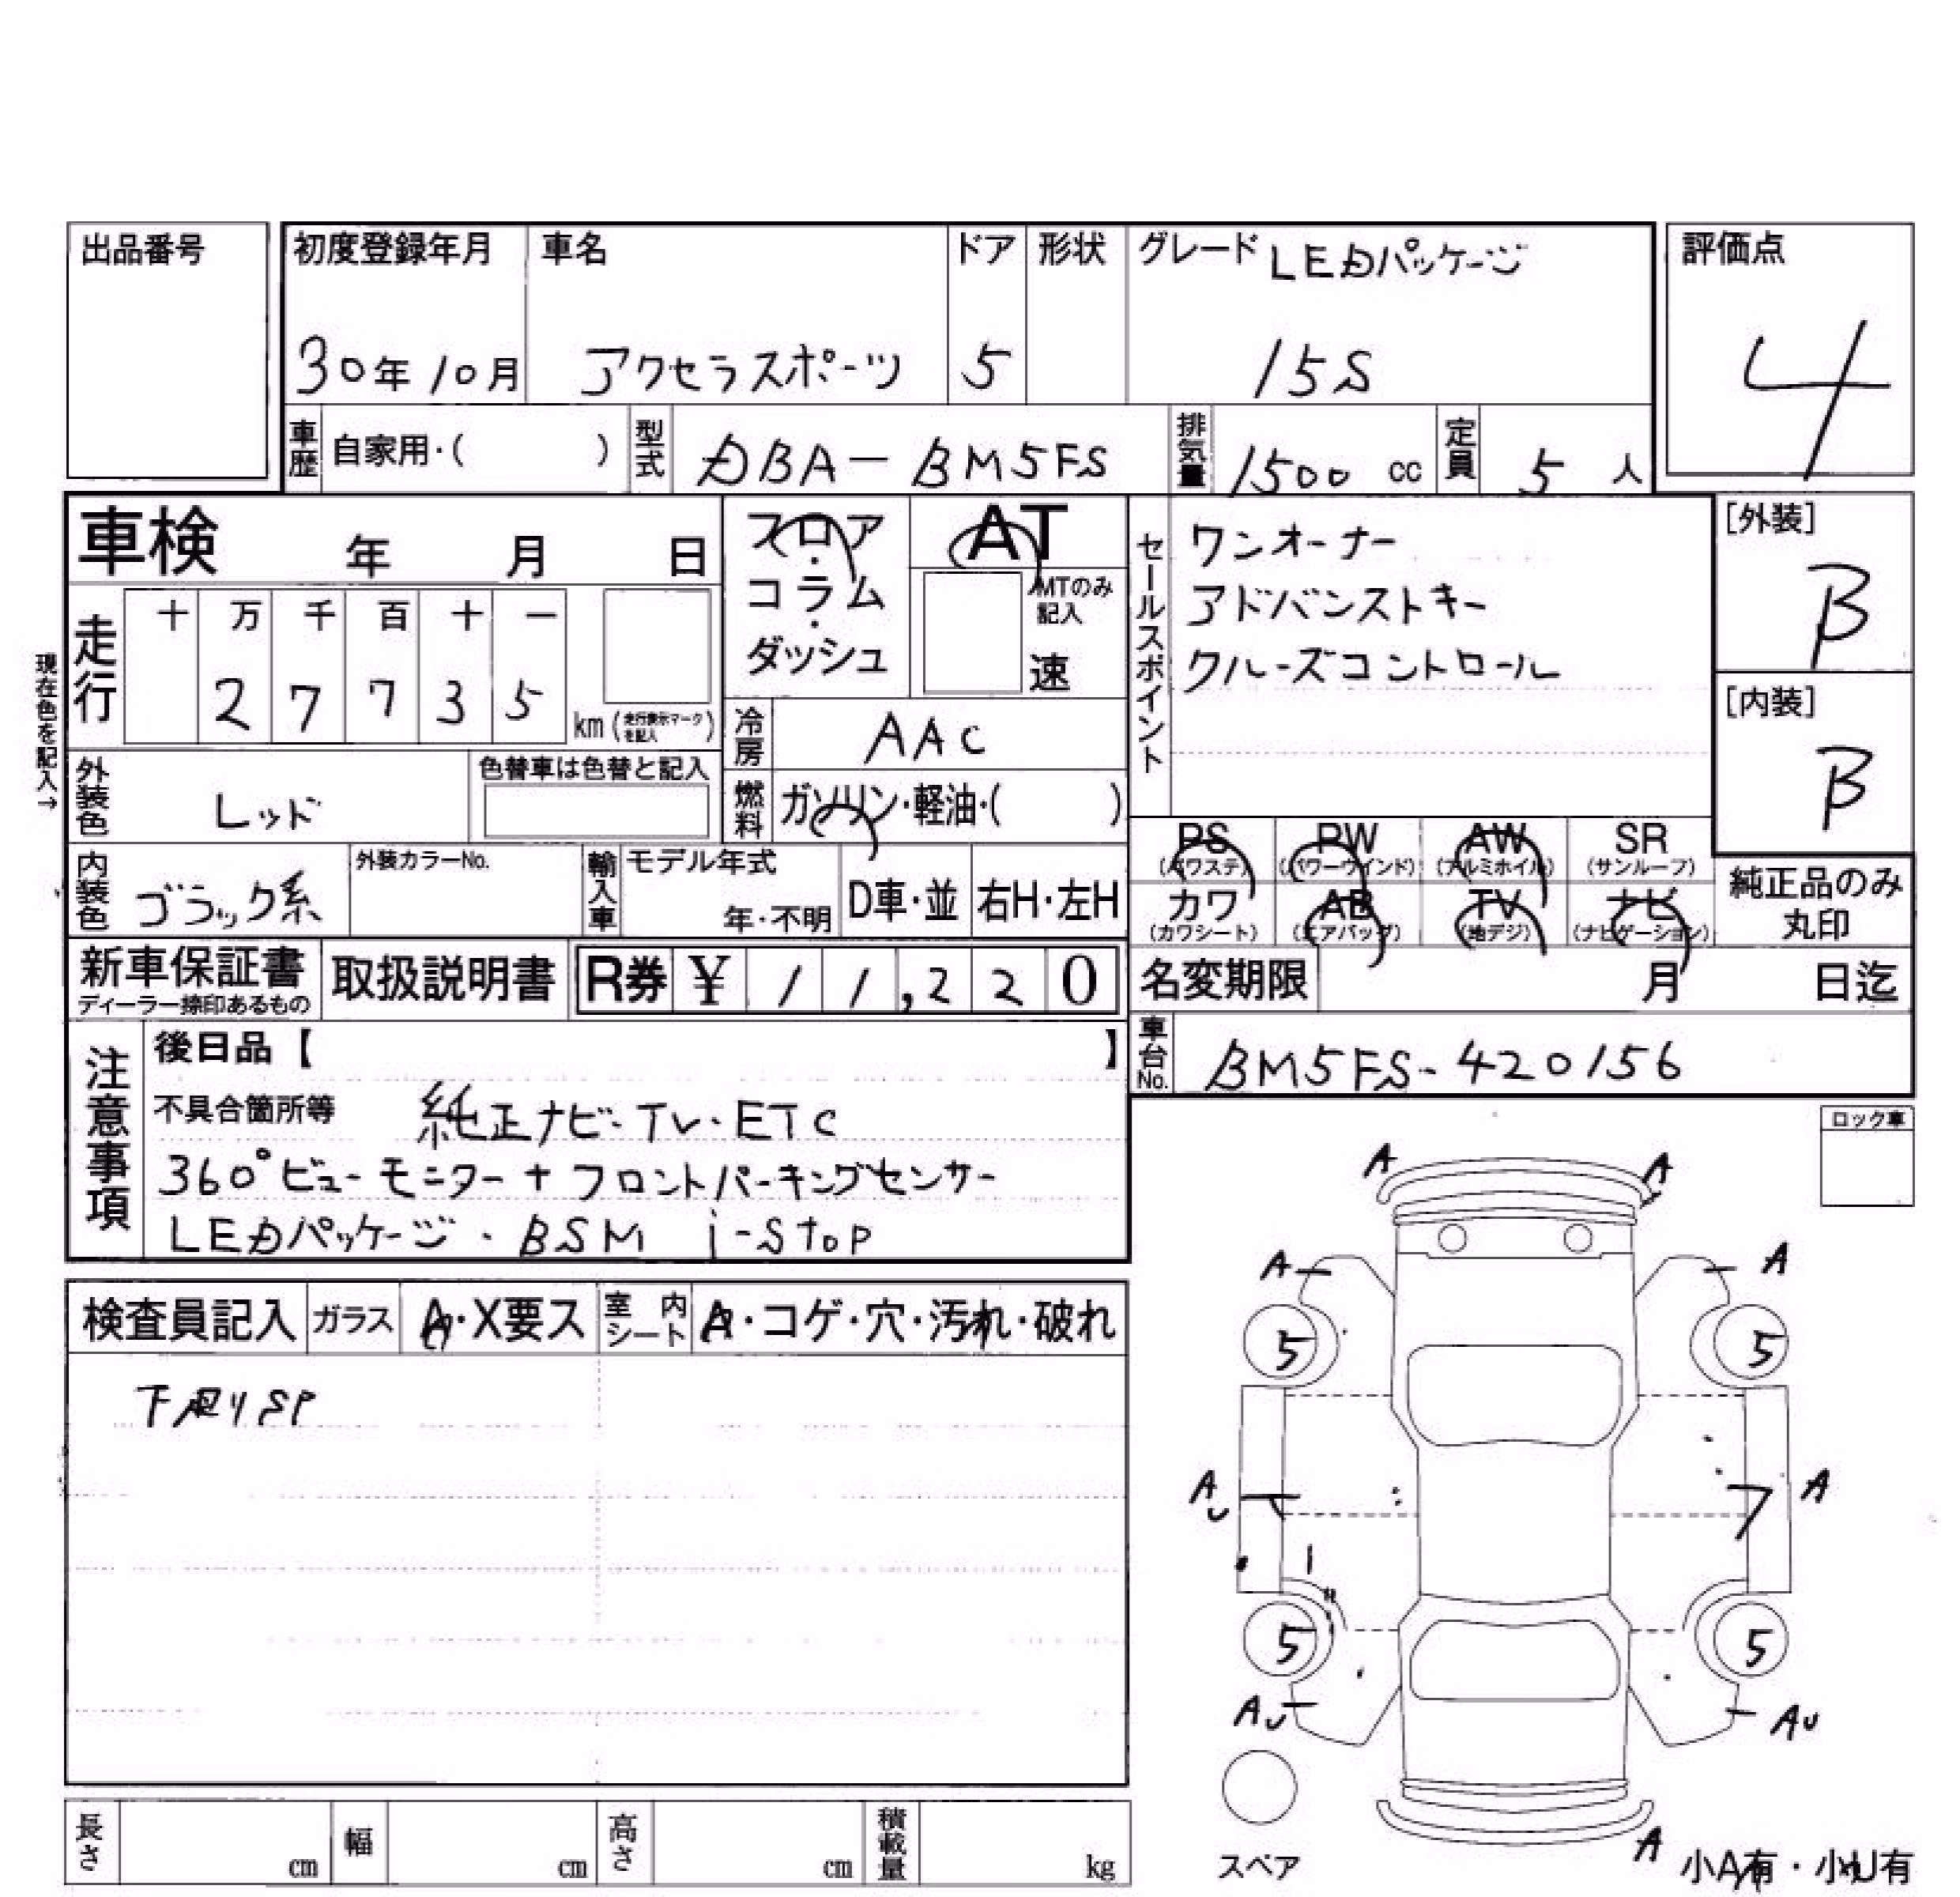 出品番号
初度登録年月 車名 ドア 形状 グレード LEDパッケージ 評価点
30年10月 アクセラスポーツ 5 15S 4
車歴 自家用・( ) 型式 DBA-BM5FS 排気量 1500 cc 定員 5 人
車検 年 月 日
フロア・コラム・ダッシュ
AT
MTのみ記入
速
セールスポイント
ワンオーナー
アドバンストキー
クルーズコントロール
[外装]
B
[内装]
B
現在色を記入→
走行 十 万 千 百 十 一
2 7 7 3 5 km (走行表示マークを記入)
冷房 AAC
燃料 ガソリン・軽油・( )
外装色 レッド 色替車は色替と記入
内装色 ブラック系 外装カラーNo. 輸入車 モデル年式 年・不明 D車・並 右H・左H
PS (パワステ) PW (パワーウインド) AW (アルミホイル) SR (サンルーフ)
カワ (カワシート) AB (エアバッグ) TV (地デジ) ナビ (ナビゲーション)
純正品のみ丸印
新車保証書 ディーラー捺印あるもの 取扱説明書 R券 ¥ 1 1,2 2 0
名変期限 月 日迄
車台No. BM5FS-420156
注意事項
後日品【 】
不具合箇所等 純正ナビ・TV・ETC
360°ビューモニター+フロントパーキングセンサー
LEDパッケージ・BSM i-stop
ロック車
検査員記入 ガラス A・X要ス 室内シート A・コゲ・穴・汚れ・破れ
下回りSP
A A
A A
5 5
AU A
5 5
AU AU
A
スペア
小A有・小U有
長さ cm 幅 cm 高さ cm 積載量 kg